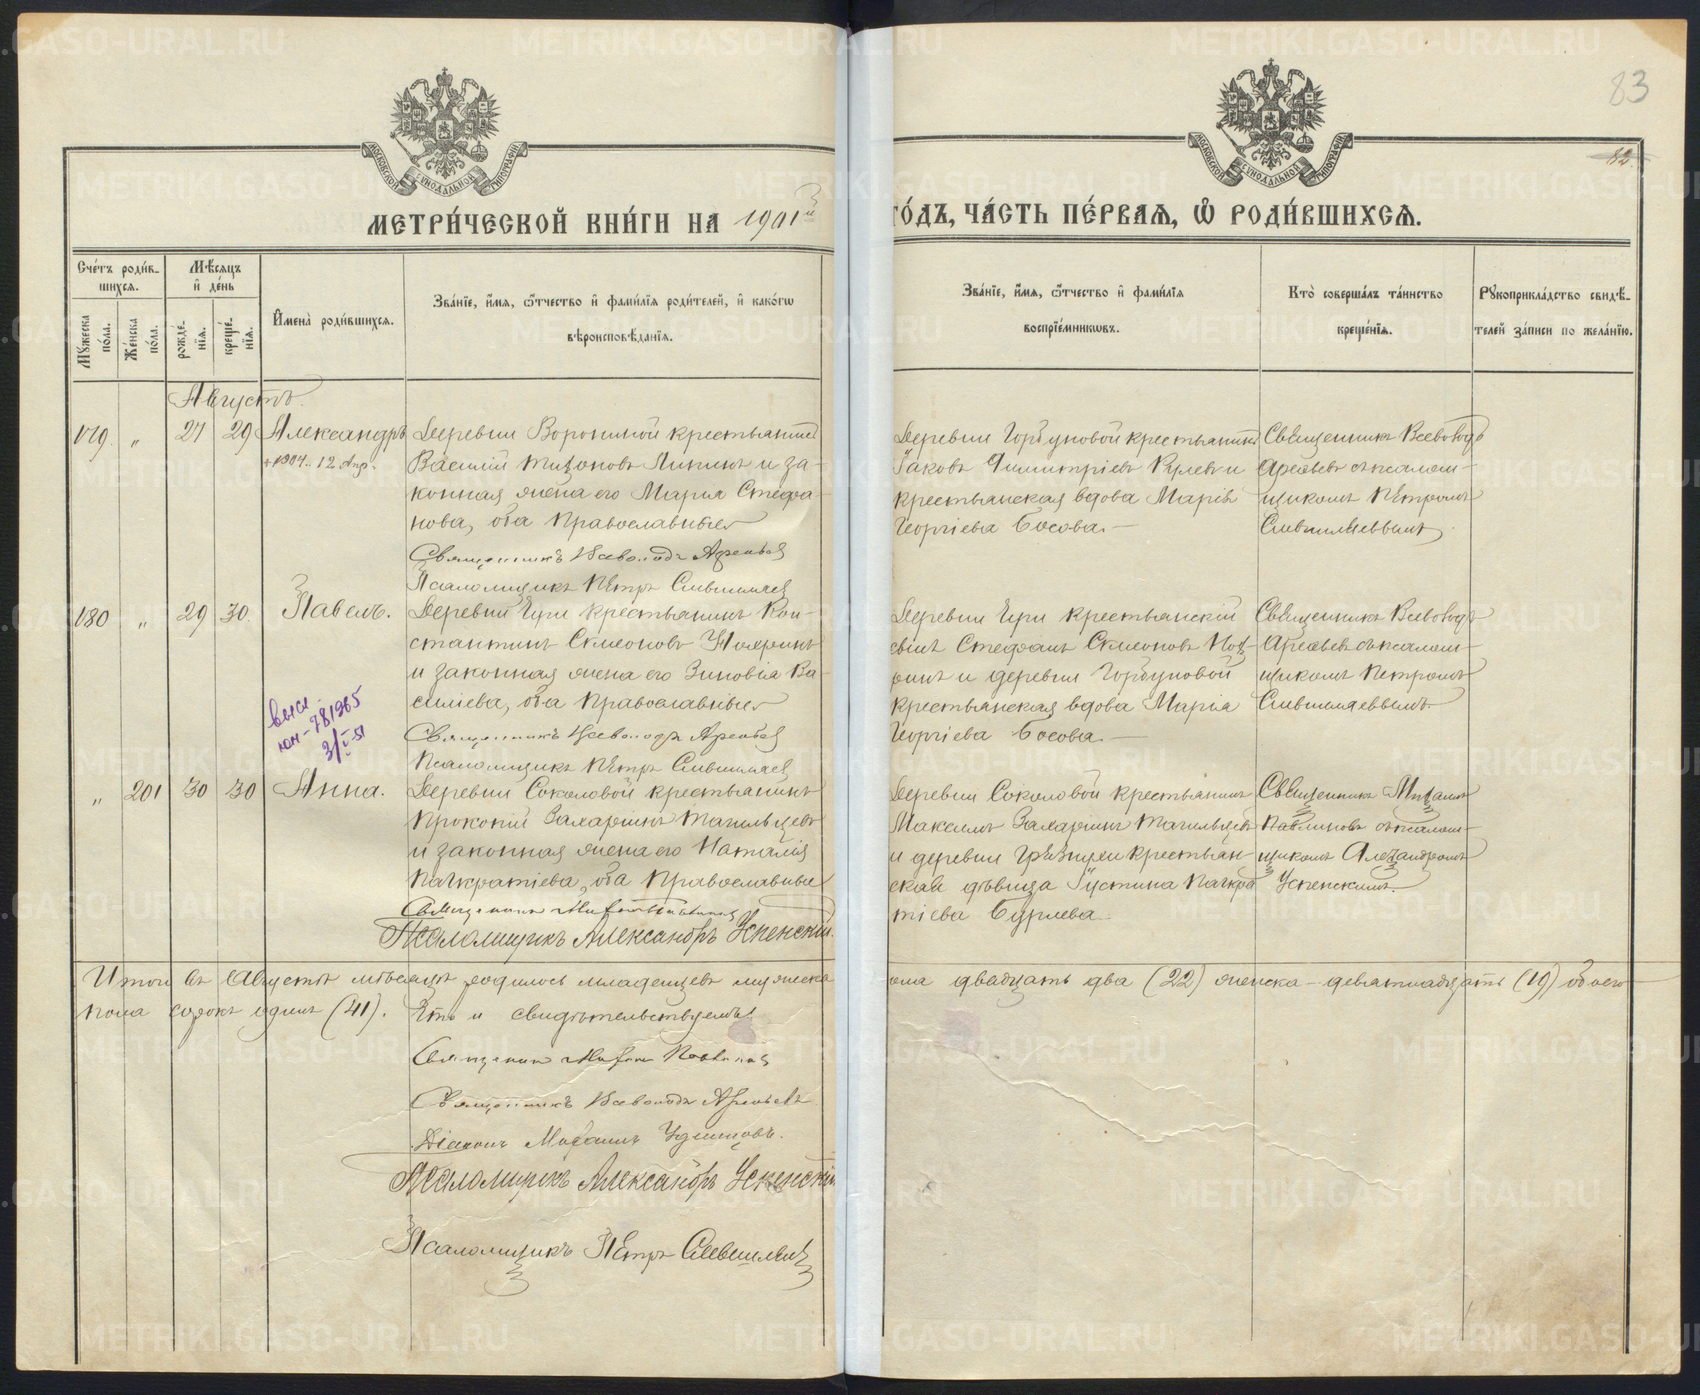 METRIKI.GASO-URAL.RU
83
82
МОСКОВСКОЙ СѴНОДАЛЬНОЙ ТИПОГРАФІИ
МОСКОВСКОЙ СѴНОДАЛЬНОЙ ТИПОГРАФІИ
МЕТРИ́ЧЕСКОЙ КНИ́ГИ НА 1901й
ГО́ДЪ, ЧА́СТЬ ПЕ́РВАѦ, Ѡ҆ РОДИ́ВШИХСѦ.
Сче́тъ роди́в-
шихсѧ.
Мѣ́сѧцъ
и҆ де́нь
Мꙋ́жеска
по́ла.
Же́нска
по́ла.
рожде́-
нїѧ.
креще́-
нїѧ.
И҆мена̀ роди́вшихсѧ.
Зва́нїе, и҆́мѧ, ѻ҆́тчество и҆ фами́лїѧ роди́телей, и҆ како́гѡ
вѣроисповѣ́данїѧ.
Зва́нїе, и҆́мѧ, ѻ҆́тчество и҆ фами́лїѧ
воспрїе́мникѡвъ.
Кто̀ соверша́лъ та́инство
креще́нїѧ.
Рꙋкоприкла́дство свидѣ́-
телей за́писи по жела́нїю.
Августъ.
179. " 27 29 Александръ
+ 1904. 12 Апр.
Деревни Ворониной крестьянинъ
Василій Тихоновъ Липинъ и за-
конная жена его Марія Стефа-
нова, оба Православные
Священникъ Всеволодъ Арефьев
Псаломщикъ Петръ
Деревни Горбуновой крестьянинъ
Іаковъ Димитріевъ и
крестьянская вдова Марія
Георгіева Босова.
Священникъ Всеволодъ
Арефьевъ съ псалом-
щикомъ Петромъ
180 " 29 30. Павелъ.
Деревни Гури крестьянинъ Кон-
стантинъ Симеоновъ
и законная жена его Зиновія Ва-
силіева, оба Православные
Священникъ Всеволодъ Арефьев
Псаломщикъ Петръ
Деревни Гури крестьянскій
сынъ Стефанъ Симеоновъ
и деревни Горбуновой
крестьянская вдова Марія
Георгіева Босова.
Священникъ Всеволодъ
Арефьевъ съ псалом-
щикомъ Петромъ
высл
юж-781965
3/V-51
" 201 30 30 Анна.
Деревни Соколовой крестьянинъ
Прокопій Захаринъ Тагильцевъ
и законная жена его Наталія
Панкратіева, оба Православные
Священникъ
Псаломщикъ Александръ Успенскій.
Деревни Соколовой крестьянинъ
Максимъ Захаринъ Тагильцевъ
и деревни Грязнухи крестьян-
ская дѣвица Іустина Панкра-
тіева Бурлева.
Священникъ Михаилъ
Павлиновъ съ псалом-
щикомъ Александромъ
Успенскимъ.
Итого въ Августѣ мѣсяцѣ родилось младенцевъ мужеска
пола двадцать два (22) женска - девятнадцать (19) обоего
пола сорокъ одинъ (41). Что и свидѣтельствуемъ
Священникъ
Священникъ Всеволодъ Арефьевъ
Діаконъ Михаилъ Удинцовъ.
Псаломщикъ Александръ Успенскій
Псаломщикъ Петръ